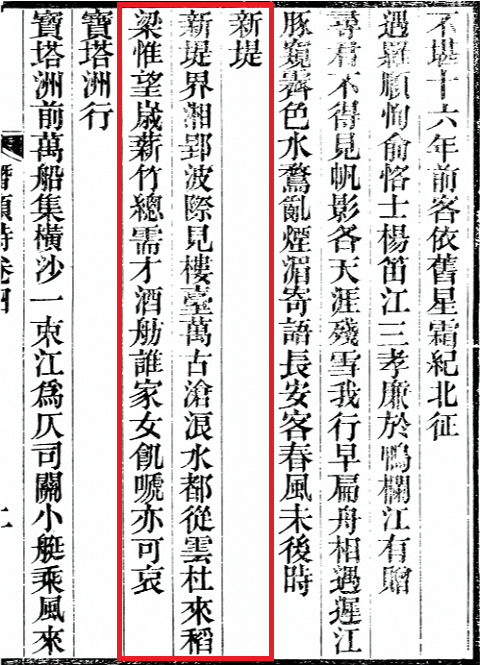 不堪十六年前客依舊星霜紀北征
遇羅順恂俞恪士楊笛江三孝廉於鴨欄江有贈
尋君不得見帆影各天涯殘雪我行早扁舟相遇遲江
豚窺霽色水鶩亂煙湄寄語長安客春風未後時
新堤
新堤界湘郢波際見樓臺萬古滄浪水都從雲杜來稻
梁惟望歲薪竹總需才酒舫誰家女飢嗁亦可哀
寶塔洲行
寶塔洲前萬船集橫沙一束江爲仄司關小艇乘風來
詩卷四